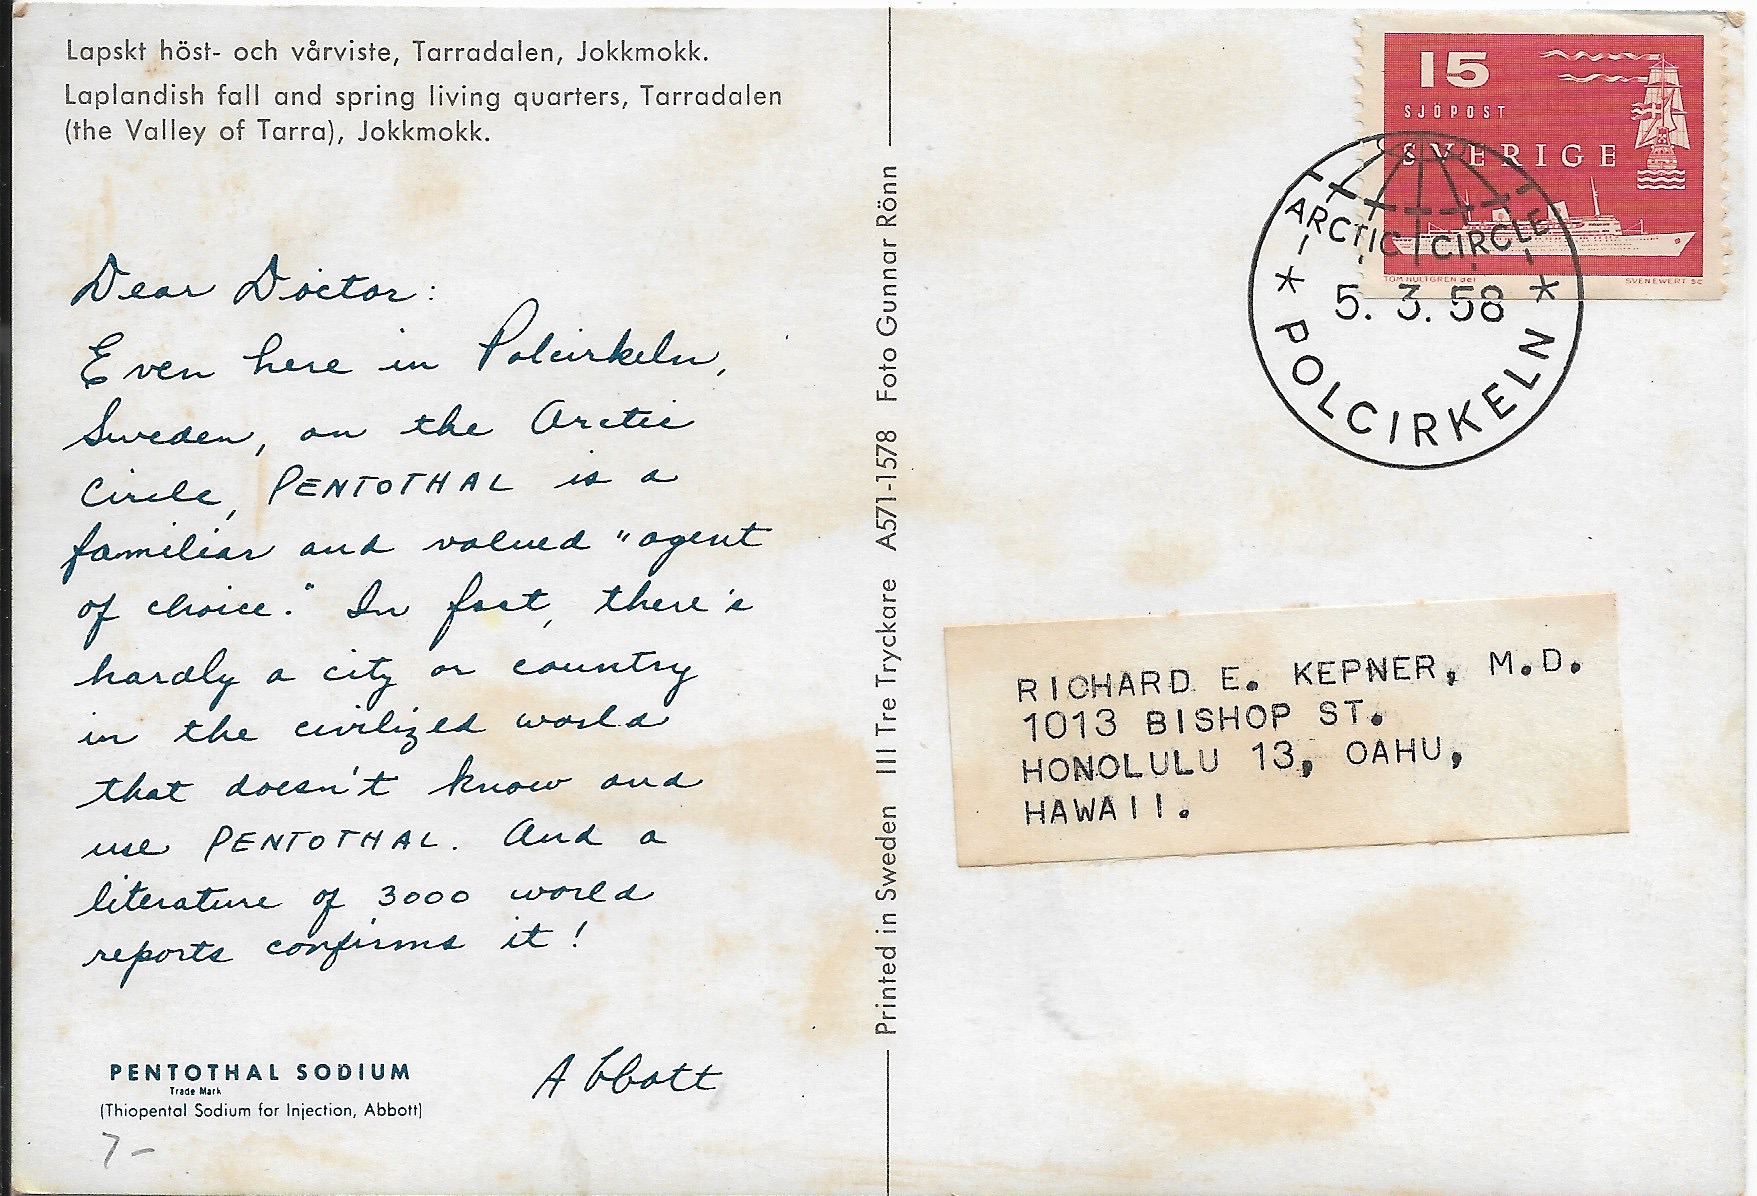 Lapskt höst- och vårviste, Tarradalen, Jokkmokk.
Laplandish fall and spring living quarters, Tarradalen
(the Valley of Tarra), Jokkmokk.
Dear Doctor:
Even here in Polcirkeln,
Sweden, on the Arctic
Circle, PENTOTHAL is a
familiar and valued "agent
of choice." In fact, there's
hardly a city or country
in the civilized world
that doesn't know and
use PENTOTHAL. And a
literature of 3000 world
reports confirms it!
Abbott
PENTOTHAL SODIUM
Trade Mark
(Thiopental Sodium for Injection, Abbott)
7-
Printed in Sweden III Tre Tryckare A571-1578 Foto Gunnar Rönn
15
SJÖPOST
SVERIGE
TOM HULTGREN del
SVENEWERT SC
ARCTIC CIRCLE
5. 3. 58
* POLCIRKELN *
RICHARD E. KEPNER, M.D.
1013 BISHOP ST.
HONOLULU 13, OAHU,
HAWAII.